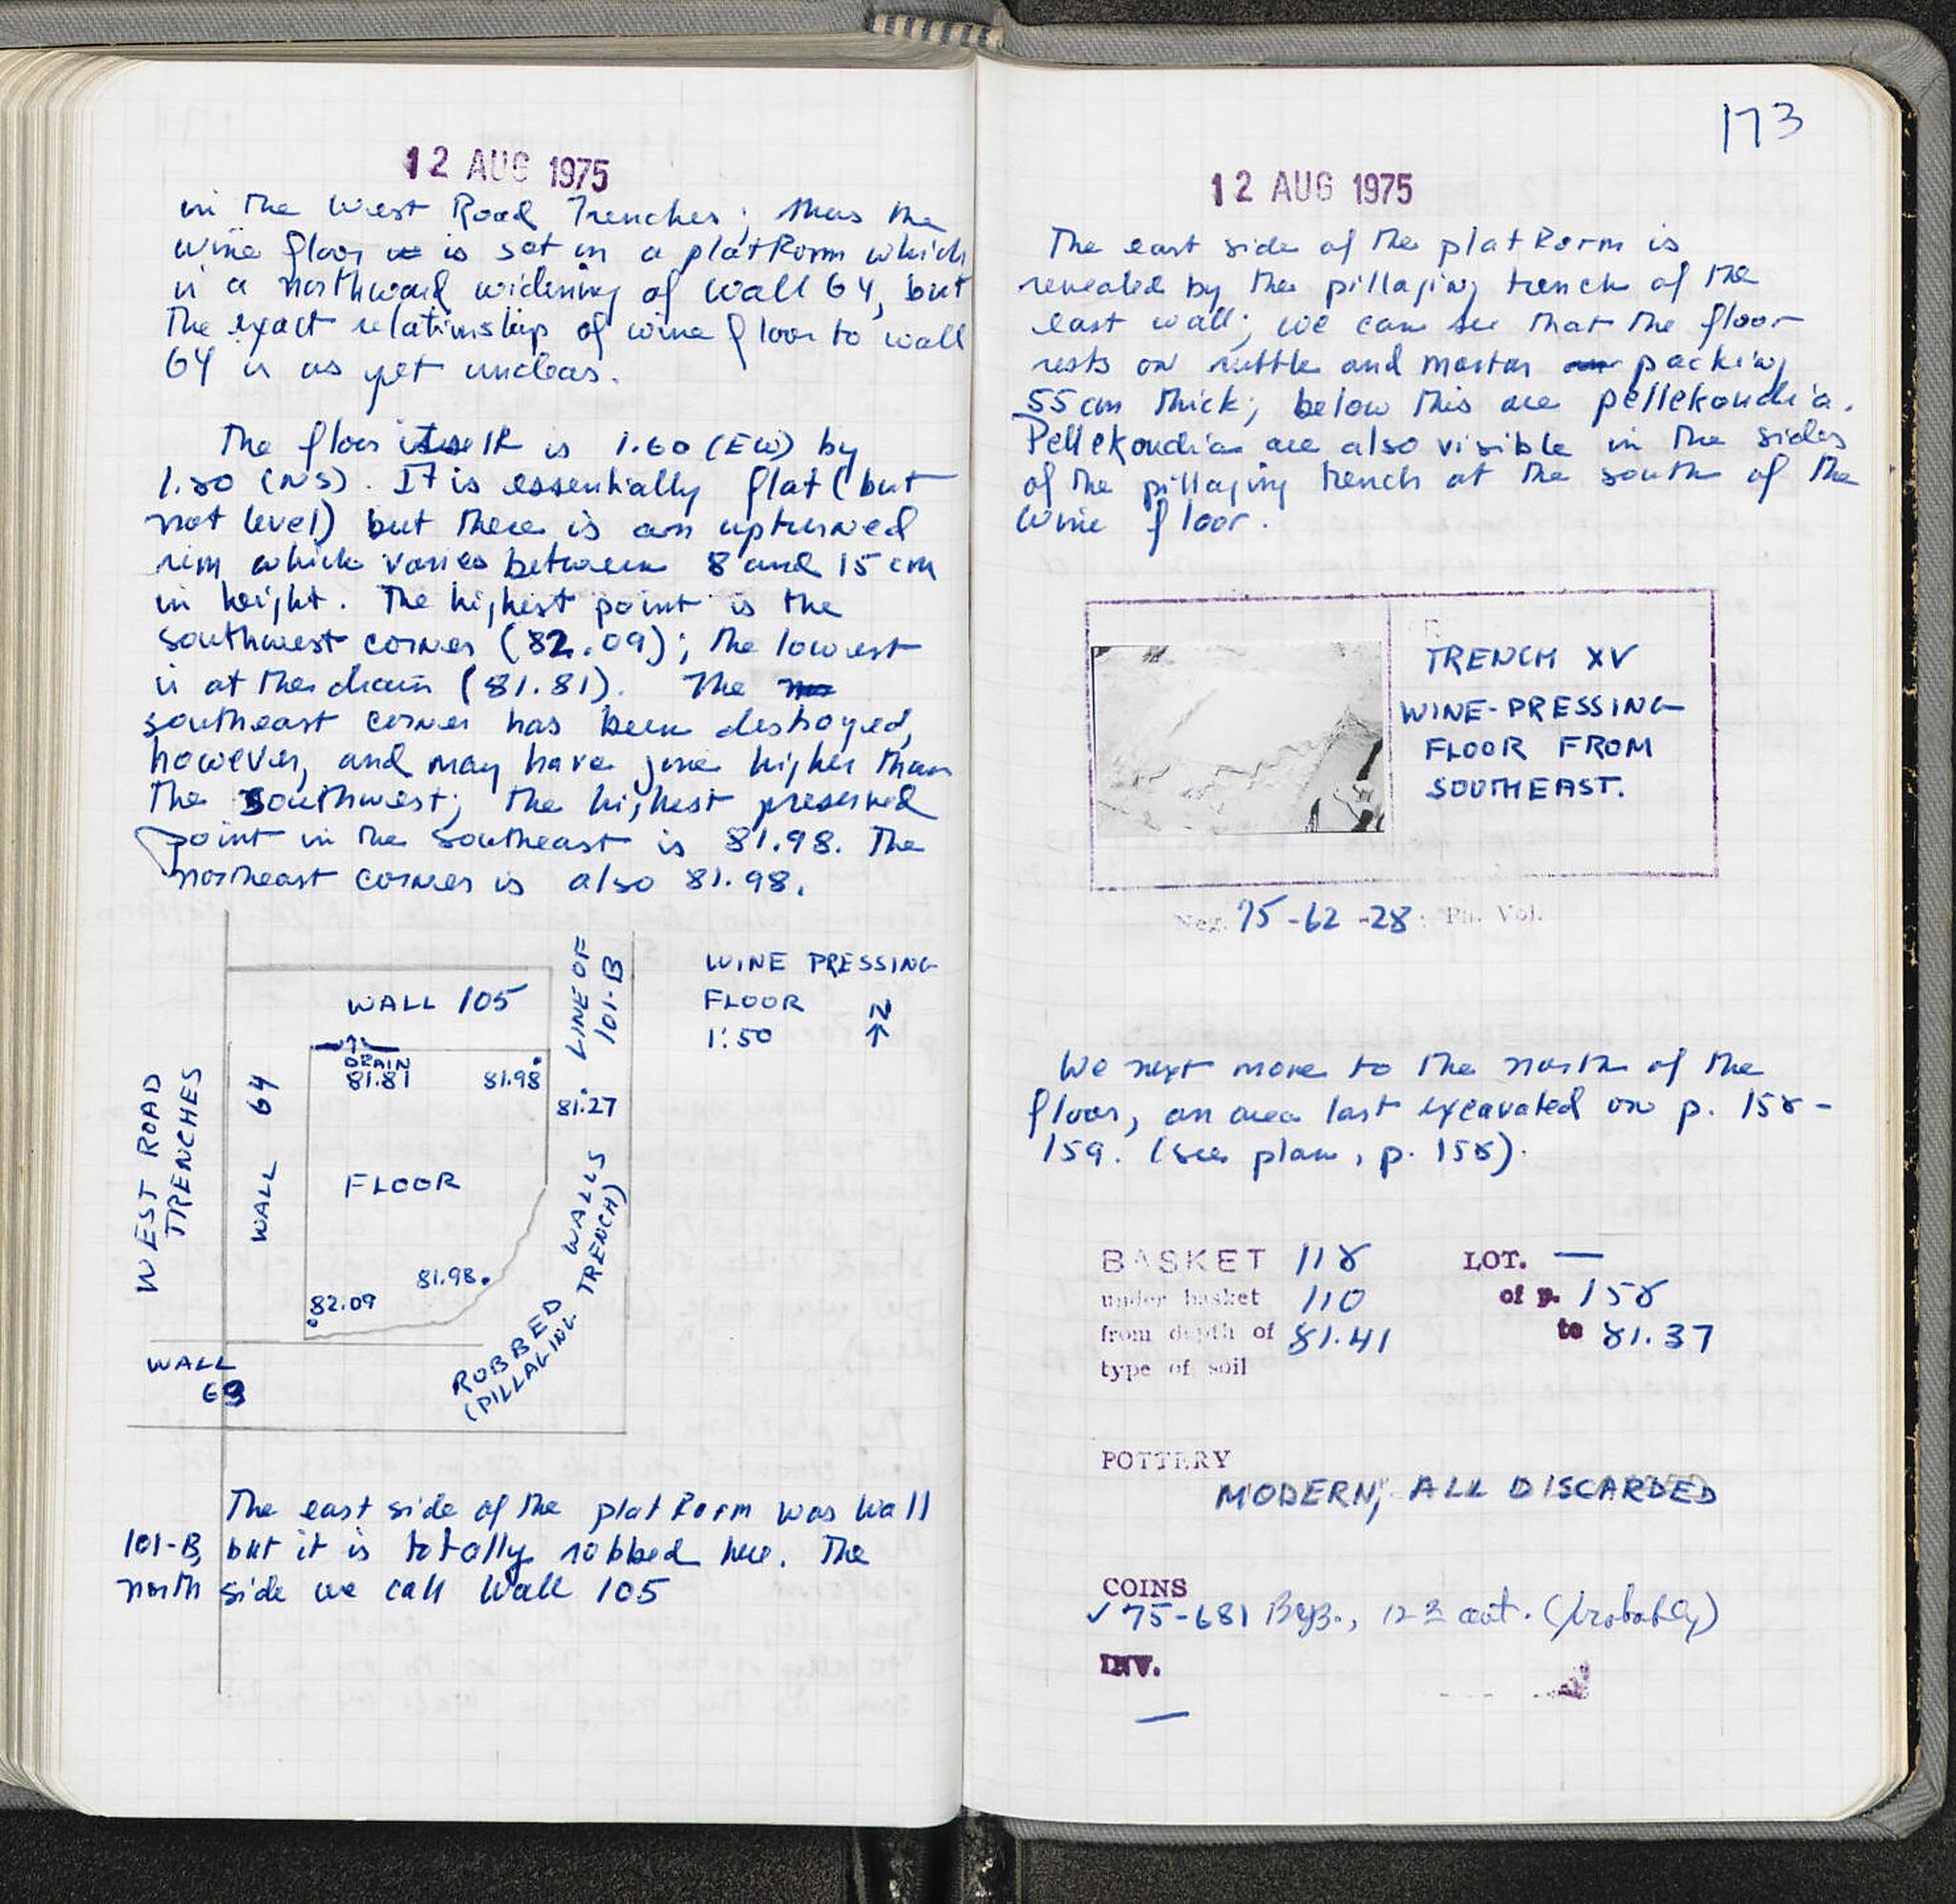 12 AUG 1975
in the West Road Trenches; thus the
wine floor is set in a platform which
is a northward widening of wall 64, but
the exact relationship of wine floor to wall
64 is as yet unclear.
The floor itself is 1.60 (EW) by
1.80 (NS). It is essentially flat (but
not level) but there is an upturned
rim which varies between 8 and 15 cm
in height. The highest point is the
southwest corner (82.09); the lowest
is at the drain (81.81). The
southeast corner has been destroyed,
however, and may have gone higher than
the southwest; the highest preserved
point in the southeast is 81.98. The
northeast corner is also 81.98.
WINE PRESSING
FLOOR
1:50
N
WALL 105
LINE OF
101-B
DRAIN
81.81
81.98
81.27
WEST ROAD
TRENCHES
WALL 64
FLOOR
81.98
82.09
ROBBED WALLS
(PILLAGING TRENCH)
WALL
69
The east side of the platform was Wall
101-B, but it is totally robbed here. The
north side we call Wall 105
173
12 AUG 1975
The east side of the platform is
revealed by the pillaging trench of the
east wall; we can see that the floor
rests on rubble and mortar packing
55 cm thick; below this are pellekoudia.
Pellekoudia are also visible in the sides
of the pillaging trench at the south of the
wine floor.
TRENCH XV
WINE-PRESSING
FLOOR FROM
SOUTHEAST.
Neg. 75-62-28: Ph. Vol.
We next move to the north of the
floor, an area last excavated on p. 158-
159. (see plan, p. 158).
BASKET 118 LOT. —
under basket 110 of p. 158
from depth of 81.41 to 81.37
type of soil
POTTERY
MODERN; ALL DISCARDED
COINS
✓ 75-681 Byz., 12th cent. (probably)
INV.
—